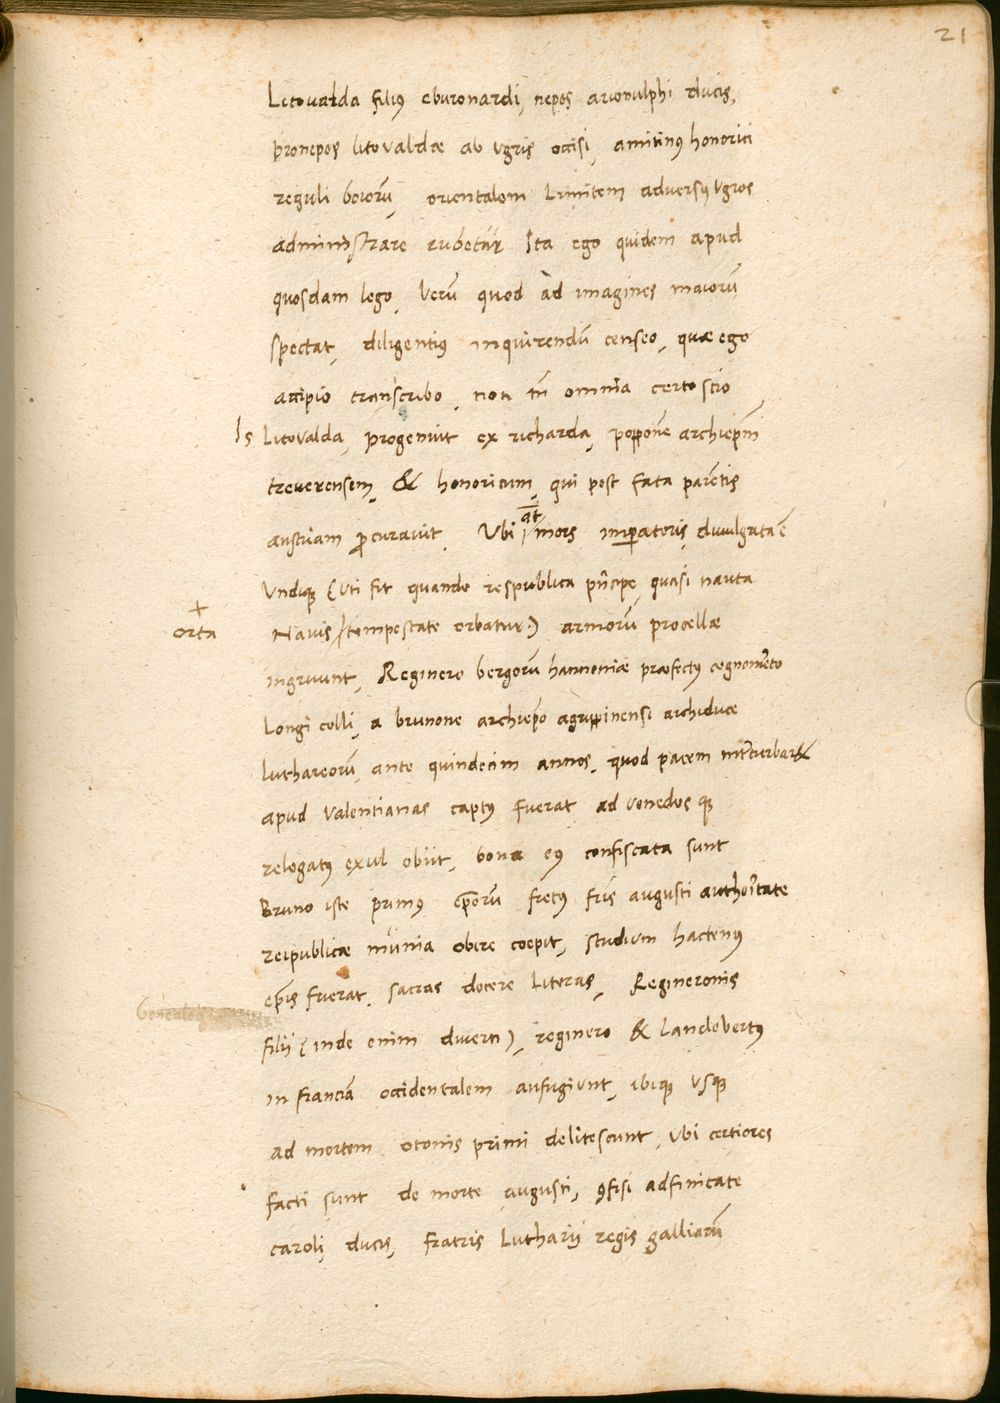 21
Litovalda filiꝰ eburonardi, nepos arionulphi ducis,
pronepos litovaldæ ab ugris occisi, amitinꝰ honorici
reguli boiorū, orientalem Limitem adversꝰ ugros
administrare iubetur Ita ego quidem apud
quosdam lego, Verū quod ad imagines maiorū
spectat, diligentiꝰ inquirendū censeo, quæ ego
accipio transcribo, non tn̄ omnia certo scio
Is Litovalda, progenuit ex richarda, poppone archiep̄m
treverensem, & honoricum, qui post fata parentis
austriam ꝓcuravit. Ubi at̄ mors imꝑatoris, divulgata ē
undiqꝫ (uti fit quando respublica pn̄cipe, quasi nauta
orta Navis tempestate orbatur) armorū procellæ
ingruunt, Reginero bergorū hannoniæ præfectꝰ cognomēto
Longi colli, a brunone archiep̄o agrippinensi archiduce
luthareorū, ante quindecim annos, quod pacem int̄turbar&
apud valentianas captꝰ fuerat, ad venedos qꝫ
relegatꝰ exul obiit, bona eꝰ confiscata sunt
Bruno iste primꝰ ep̄orū fretꝰ fr̄is augusti authoritate
reipublicæ munia obire coepit, studium hactenꝰ
ep̄is fuerat, sacras docere Literas, Regineronis
filii (inde enim diverti), reginero & Landebertꝰ
in franciā occidentalem aufugiunt, ibiqꝫ usqꝫ
ad mortem otonis primi delitescunt, ubi certiores
facti sunt de morte augusti, ꝯfisi adfinitate
caroli, ducis, fratris Lutharii regis galliarū